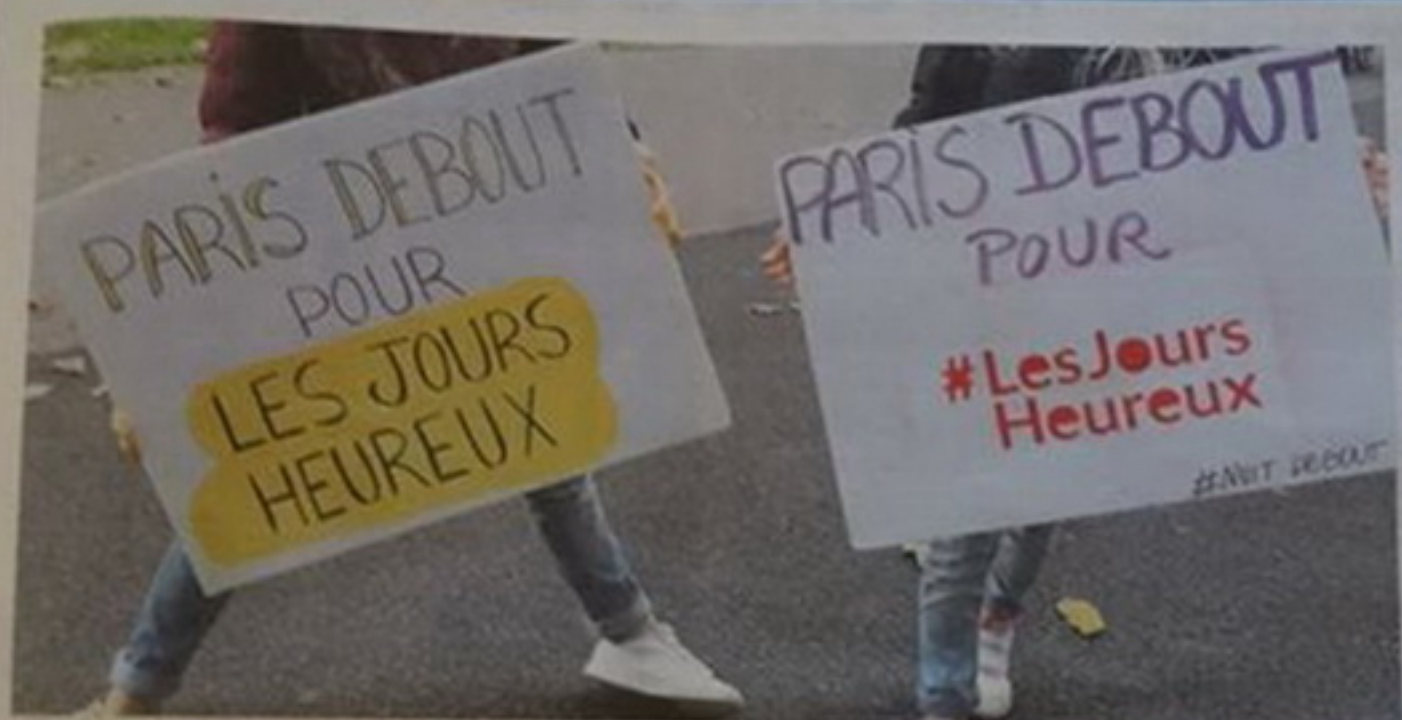 PARIS DEBOUT
POUR
LES JOURS
HEUREUX
PARIS DEBOUT
POUR
#LesJours
Heureux
#NUIT DEBOUT